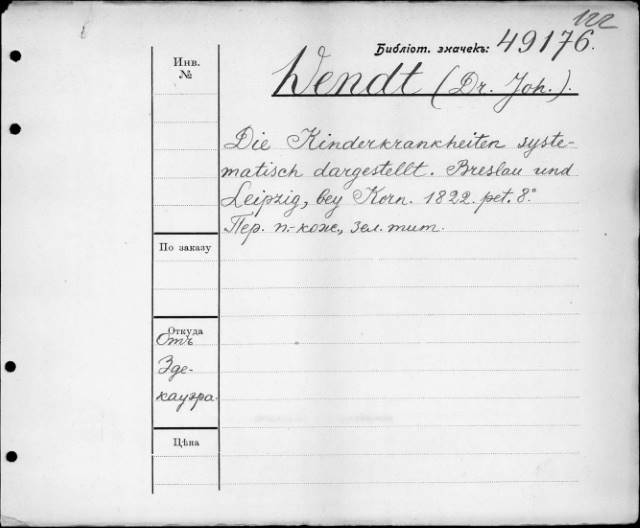 122
Библіот. значекъ: 49176.
Инв.
№
Wendt (Dr. Joh.).
Die Kinderkrankheiten syste-
matisch dargestellt. Breslau und
Leipzig, bey Korn. 1822. pet. 8.°
Пер. п.-кож., зел. тит.
По заказу
Откуда
Отъ
Зде-
кауэра.
Цѣна